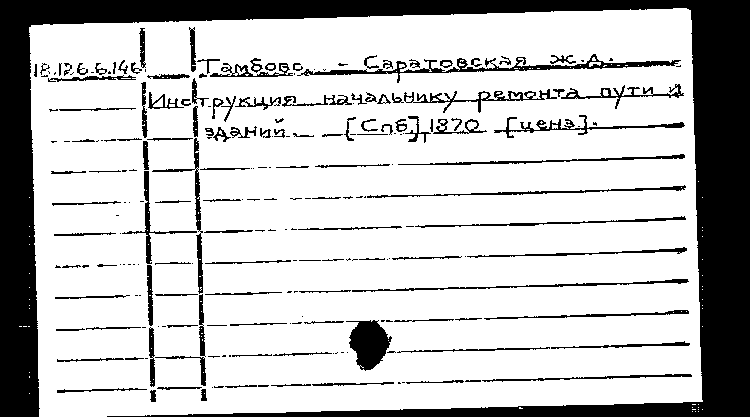 18.126.6.146 Тамбово. - Саратовская ж.д.
Инструкция начальнику ремонта пути и
зданий. [Спб], 1870 [цена].